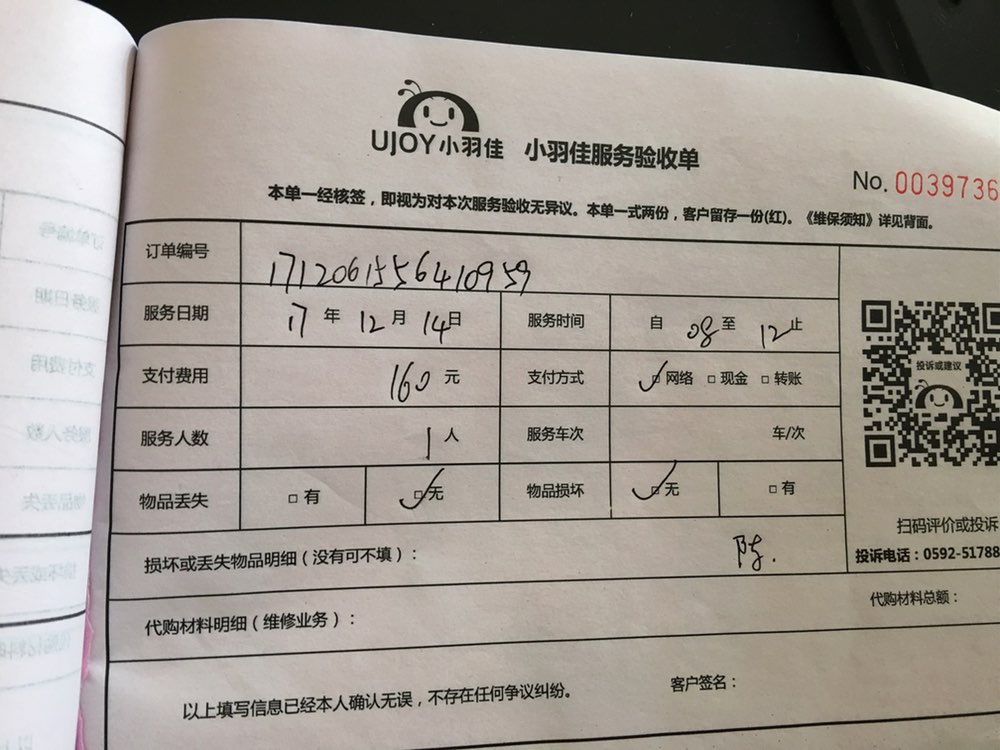 UJOY小羽佳 小羽佳服务验收单
No. 0039736
本单一经核签，即视为对本次服务验收无异议。本单一式两份，客户留存一份(红)。《维保须知》详见背面。
订单编号 1712061556410959
服务日期 17 年 12 月 14 日 服务时间 自 08 至 12 止
支付费用 160 元 支付方式 ☑网络 □现金 □转账
服务人数 1 人 服务车次 车/次
物品丢失 □有 ☑无 物品损坏 ☑无 □有
投诉或建议
扫码评价或投诉
投诉电话：0592-51788
损坏或丢失物品明细（没有可不填）： 陈.
代购材料明细（维修业务）： 代购材料总额：
以上填写信息已经本人确认无误，不存在任何争议纠纷。 客户签名：